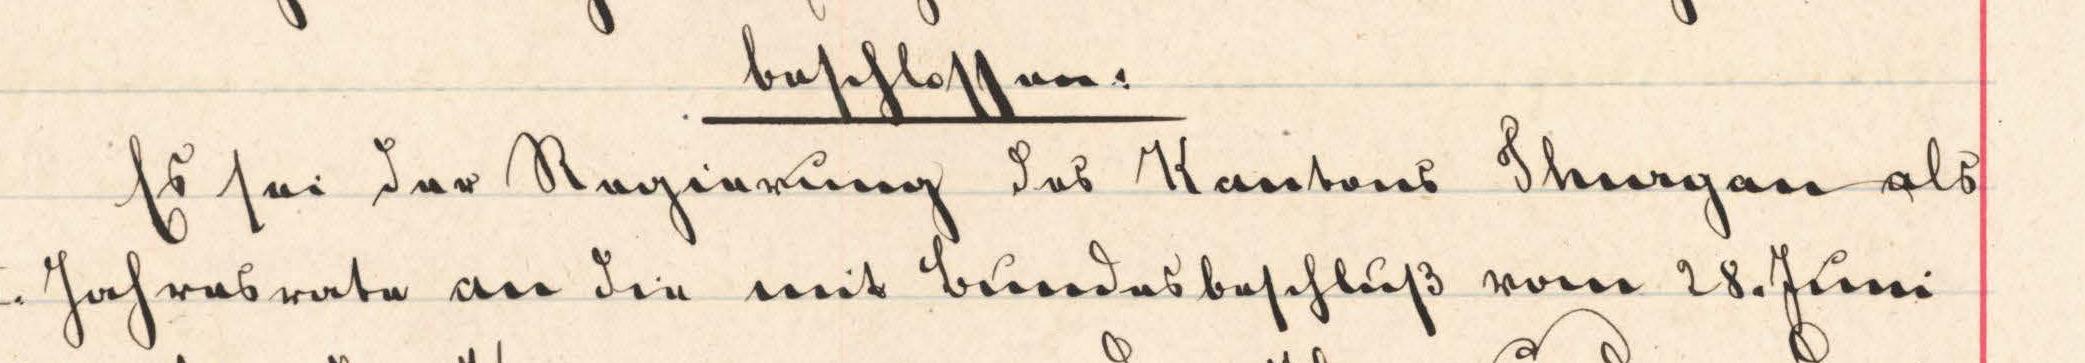 beschlossen:
Es sei der Regierung des Kantons Thurgau als
Jahresrate an die mit Bundesbeschluß vom 28. Juni